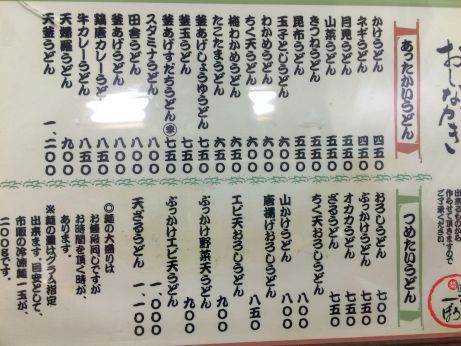 おしながき
あったかいうどん
かけうどん 四五〇
ネギうどん 四五〇
月見うどん 五五〇
山菜うどん 五五〇
きつねうどん 五五〇
昆布うどん 五五〇
玉子とじうどん 六〇〇
わかめうどん 六〇〇
ちく天うどん 六〇〇
梅わかめうどん 六五〇
たこたまうどん 六五〇
釜あげしょうゆうどん 七五〇
釜玉うどん 七五〇
釜あげすだちうどん 七五〇
スタミナうどん 八〇〇
田舎うどん 八〇〇
釜あげうどん 八〇〇
鶏唐カレーうどん 八五〇
牛カレーうどん 八五〇
天婦羅うどん 九〇〇
天釜うどん 一、二〇〇
出来るものから
作らせて頂きますので
ご了承ください。
つめたいうどん
おろしうどん 七〇〇
ぶっかけうどん 七五〇
オカカうどん 七五〇
ざるうどん 七五〇
ちく天おろしうどん 八〇〇
山かけうどん 八〇〇
唐揚げおろしうどん 八五〇
エビ天おろしうどん 九〇〇
ぶっかけ野菜天うどん 九〇〇
ぶっかけエビ天うどん 一、〇〇〇
天ざるうどん 一、一〇〇
◎麺の大盛りは
お値段同じですが
お時間を頂く時が
あります。
※麺の量はグラム指定
出来ます。目安として、
市販の冷凍麺一玉が、
200gです。